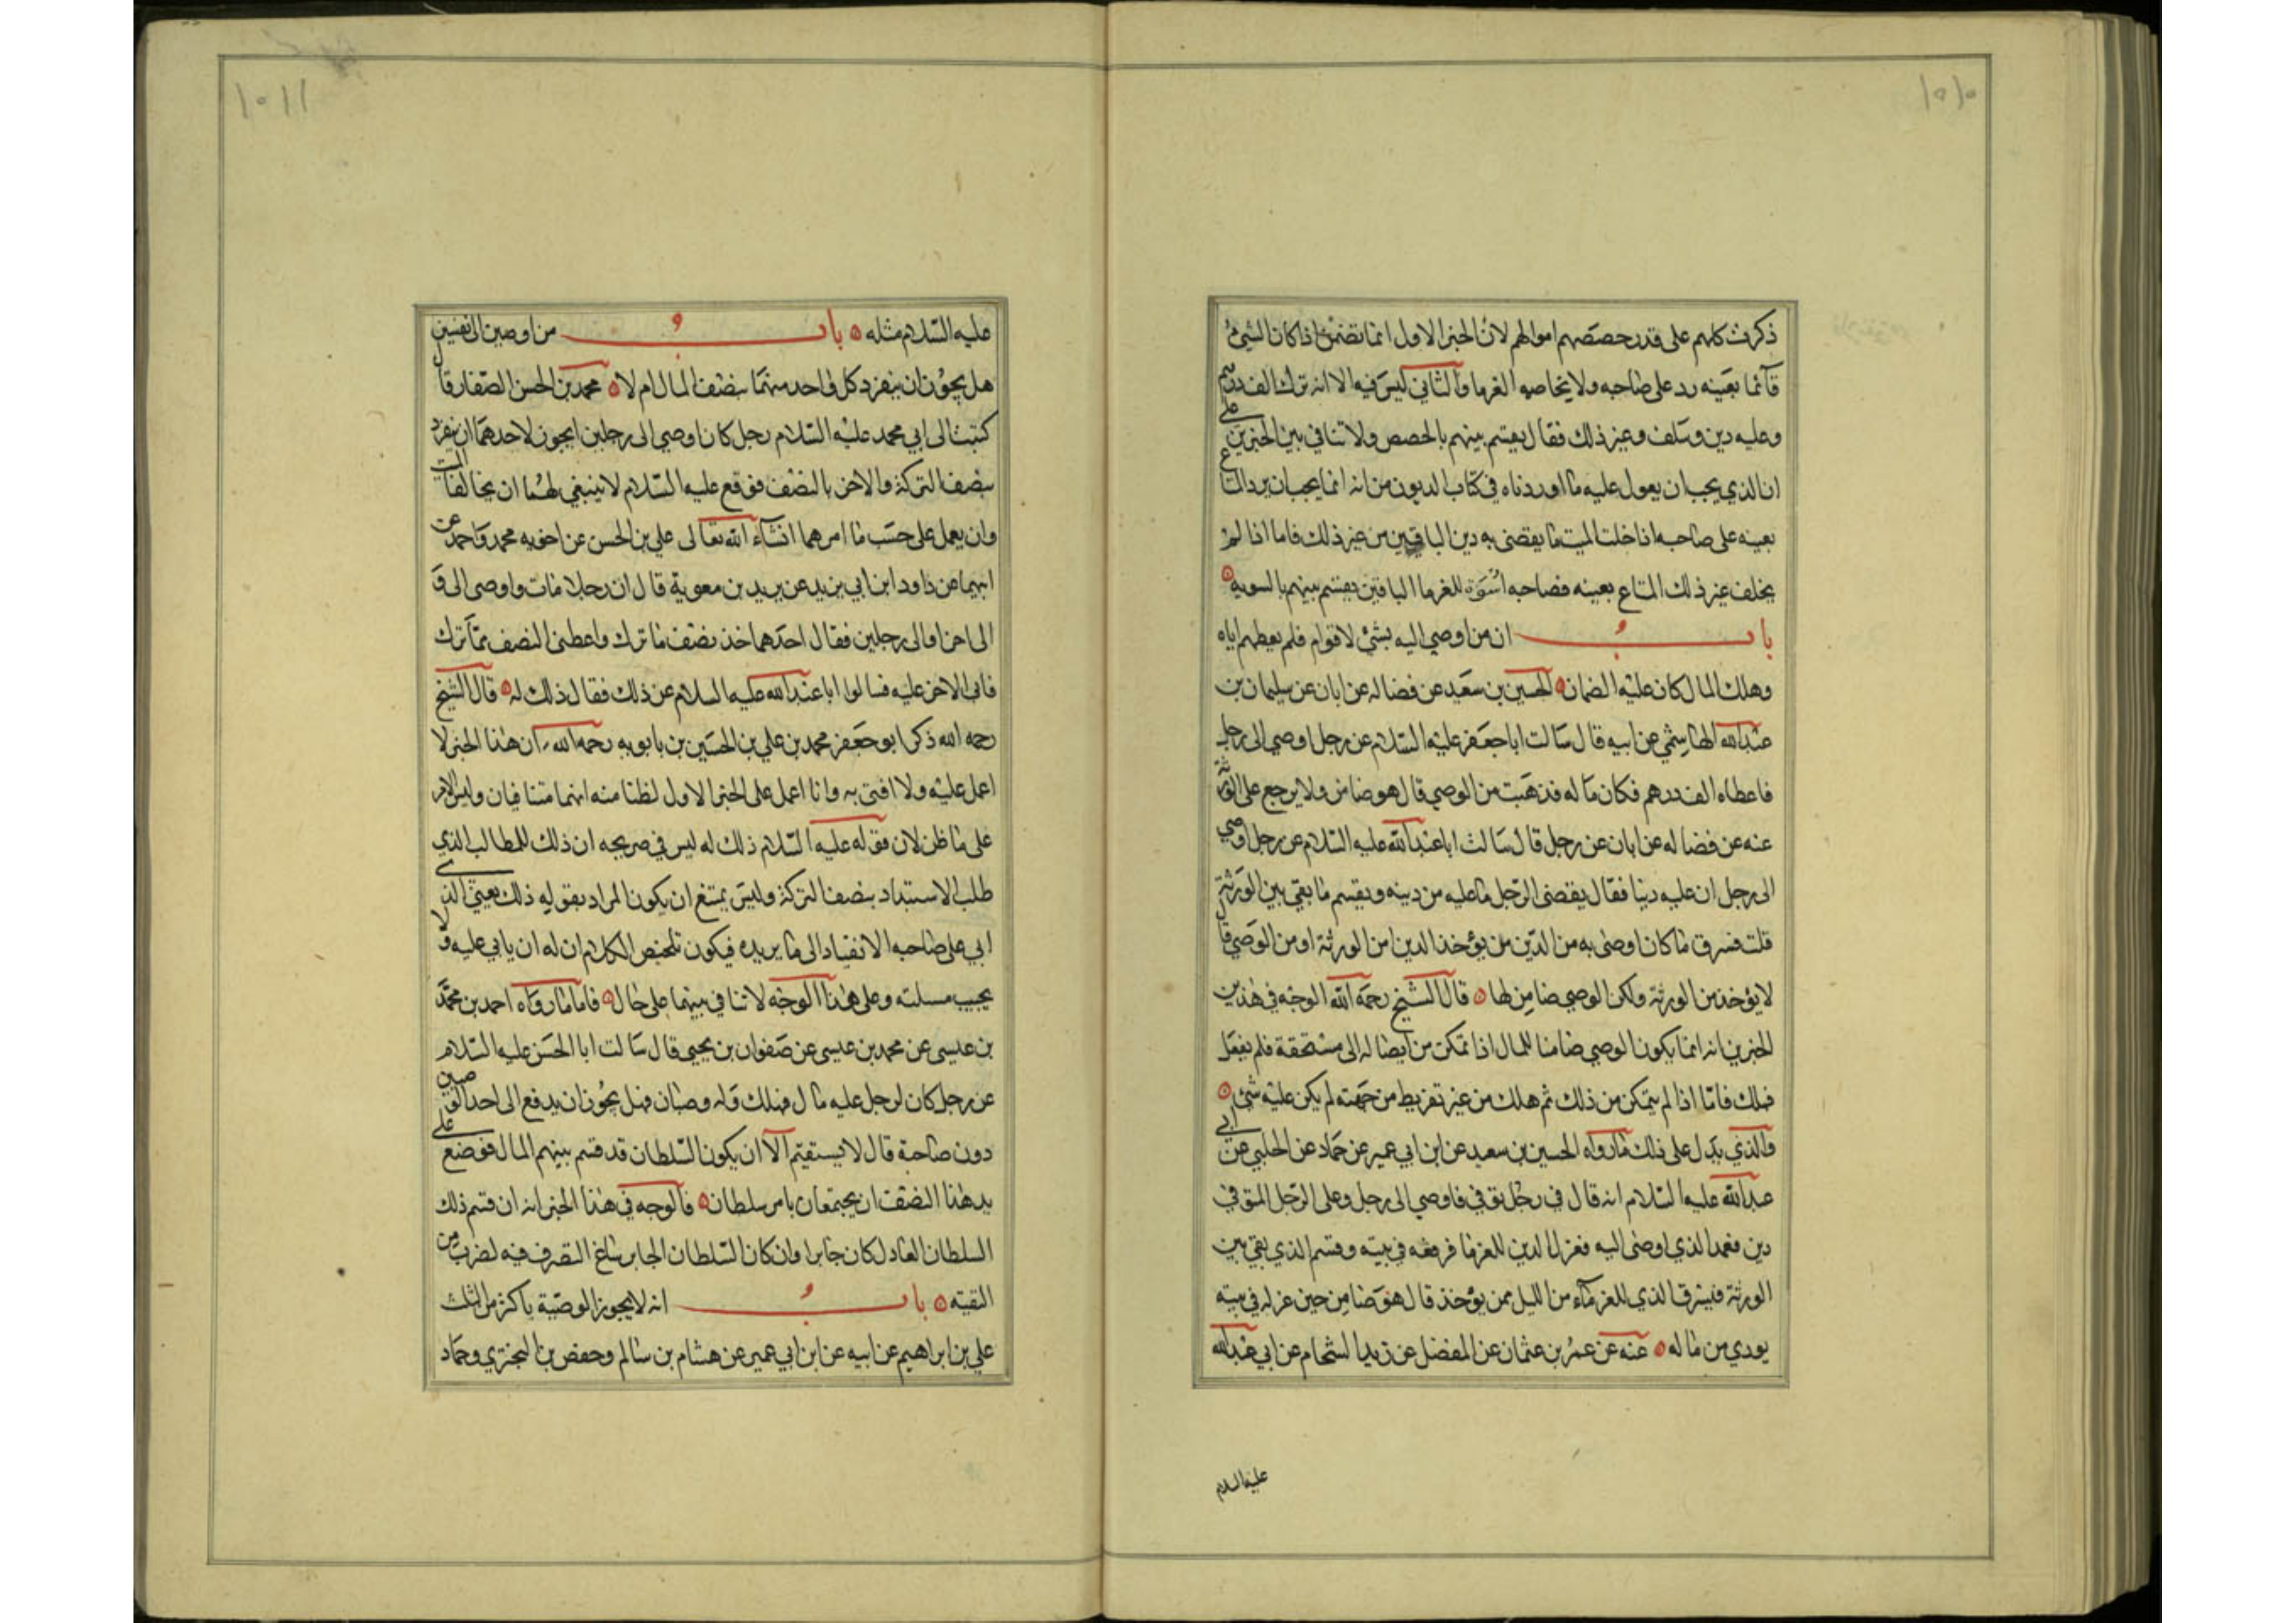 ١٥١٠
ذكرت كلهم على قدر حصصهم اموالهم لان الخبر الاول انما تضمن اذا كان الشئ
قآئما بعينه رد على صاحبه ولا يخاصه الغرما والثاني ليس فيه الا انه ترك الف درهم
وعليه دين وسلف وغير ذلك فقال يقسم بينهم بالحصص ولا تنافي بين الخبرين على
ان الذي يجب ان يعول عليه ما اوردناه في كتاب الديون من انه انما يجب ان يرد المتاع
بعينه على صاحبه اذا خلت الميت ما يقضى به دين الباقين من غير ذلك فاما اذا لم
يخلف غير ذلك المتاع بعينه فصاحبه اسوة للغرما الباقين يقسم بينهم بالسويه
باب ان من اوصي اليه بشئ لاقوام فلم يعطهم اياه
وهلك المال كان عليه الضمان الحسين بن سعيد عن فضاله عن ابان عن سليمان بن
عبدالله الهاشمي عن ابيه قال سالت ابا جعفر عليه السلام عن رجل اوصي الى رجل
فاعطاه الف درهم فكان ماله فذهبت من الوصي قال هو ضامن ولا يرجع على الورثة
عنه عن فضاله عن ابان عن رجل قال سالت ابا عبدالله عليه السلام عن رجل اوصي
الى رجل ان عليه دينا فقال يقضى الرجل ما عليه من دينه ويقسم ما بقي بين الورثة
قلت فسرق ما كان اوصى به من الدين من يؤخذ الدين امن الورثة او من الوصي قال
لا يؤخذ من الورثة ولكن الوصي ضامن لها قال الشيخ رحمه الله الوجه في هذين
الخبرين انه انما يكون الوصي ضامنا للمال اذا تمكن من ايصاله الى مستحقة فلم يفعل
فهلك فامّا اذا لم يتمكن من ذلك ثم هلك من غير تفريط من جهته لم يكن عليه شئ
والذي يدل على ذلك ما رواه الحسين بن سعيد عن ابن ابي عمير عن حماد عن الحلبي عن ابي
عبدالله عليه السلام انه قال في رجل توفي فاوصي الى رجل وعلى الرجل المتوفي
دين فعمد الذي اوصى اليه فعزل الدين للغرما فرفعه في بيته وقسم الذي بقي بين
الورثة فيسرق الذي للغرمآء من الليل ممن يؤخذ قال هو ضامن حين عزله في بيته
يودي من ماله عنه عن عمر بن عثمان عن المفضل عن زيد الشحام عن ابي عبدالله
عليه السلام
١٥١١
عليه السلام مثله باب من اوصي الى نفسين
هل يجوز ان ينفرد كل واحد منهما بنصف المال ام لا محمد بن الحسن الصفار قال
كتبت الى ابي محمد عليه السلام رجل كان اوصي الى رجلين ايجوز لاحدهما ان ينفرد
بنصف التركة والاخر بالنصف فوقع عليه السلام لا ينبغي لهما ان يخالفا الميت
وان يعمل على حسب ما امرهما انشآء الله تعالى علي بن الحسن عن اخويه محمد واحمد عن
ابيهما عن داود ابن ابي يزيد عن بريد بن معوية قال ان رجلا مات واوصى الى و
الى اخر او الى رجلين فقال احدهما خذ نصف ما ترك واعطنى النصف مما ترك
فابى الاخر عليه فسالوا ابا عبدالله عليه السلام عن ذلك فقال ذلك له قال الشيخ
رحمه الله ذكر ابو جعفر محمد بن علي بن الحسين بن بابويه رحمه الله ان هذا الخبر لا
اعمل عليه ولا افتى به وانا اعمل على الخبر الاول لظنا منه انهما متنافيان وليس الامر
على ما ظن لان قوله عليه السلام ذلك له ليس في صريحه ان ذلك للمطالب الذي
طلب الاستبداد بنصف التركة وليس يمتنع ان يكون المراد بقوله ذلك يعني الذي
ابي على صاحبه الانقياد الى ما يريده فيكون تلخيص الكلام ان له ان يابي عليه ولا
يجيب مسلته وعلى هذا الوجه لا تنافي بينهما على حال فاما ما رواه احمد بن محمد
بن عيسى عن محمد بن عيسى عن صفوان بن يحيى قال سالت ابا الحسن عليه السلام
عن رجل كان لرجل عليه مال فهلك وله وصيان فهل يجوز ان يدفع الى احد الوصيين
دون صاحبة قال لا يستقيم الا ان يكون السلطان قد قسم بينهم المال فوضع على
يد هذا النصف ان يجتمعان بامر سلطان فالوجه في هذا الخبر انه ان قسم ذلك
السلطان العادل كان جايرا وان كان السلطان الجاير ساغ التصرف فيه لضرب من
التقيه باب انه لا يجوز الوصية باكثر من الثلث
علي بن ابراهيم عن ابيه عن ابن ابي عمير عن هشام بن سالم وحفص بن البختري وحماد